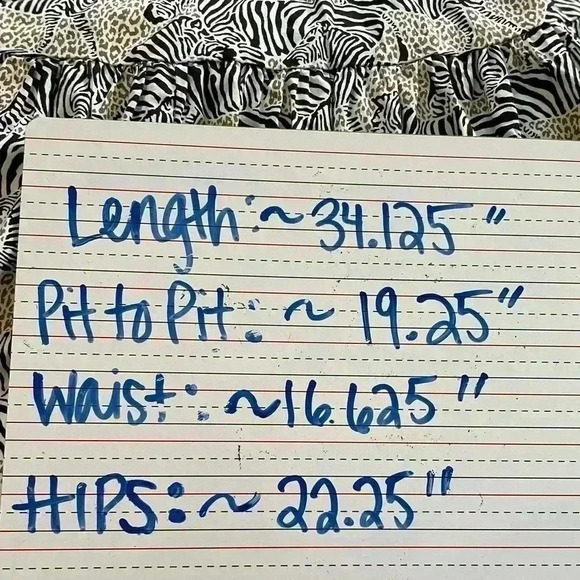 Length: ~ 34.125"
Pit to Pit: ~ 19.25"
Waist: ~16.625"
HIPS: ~ 22.25"